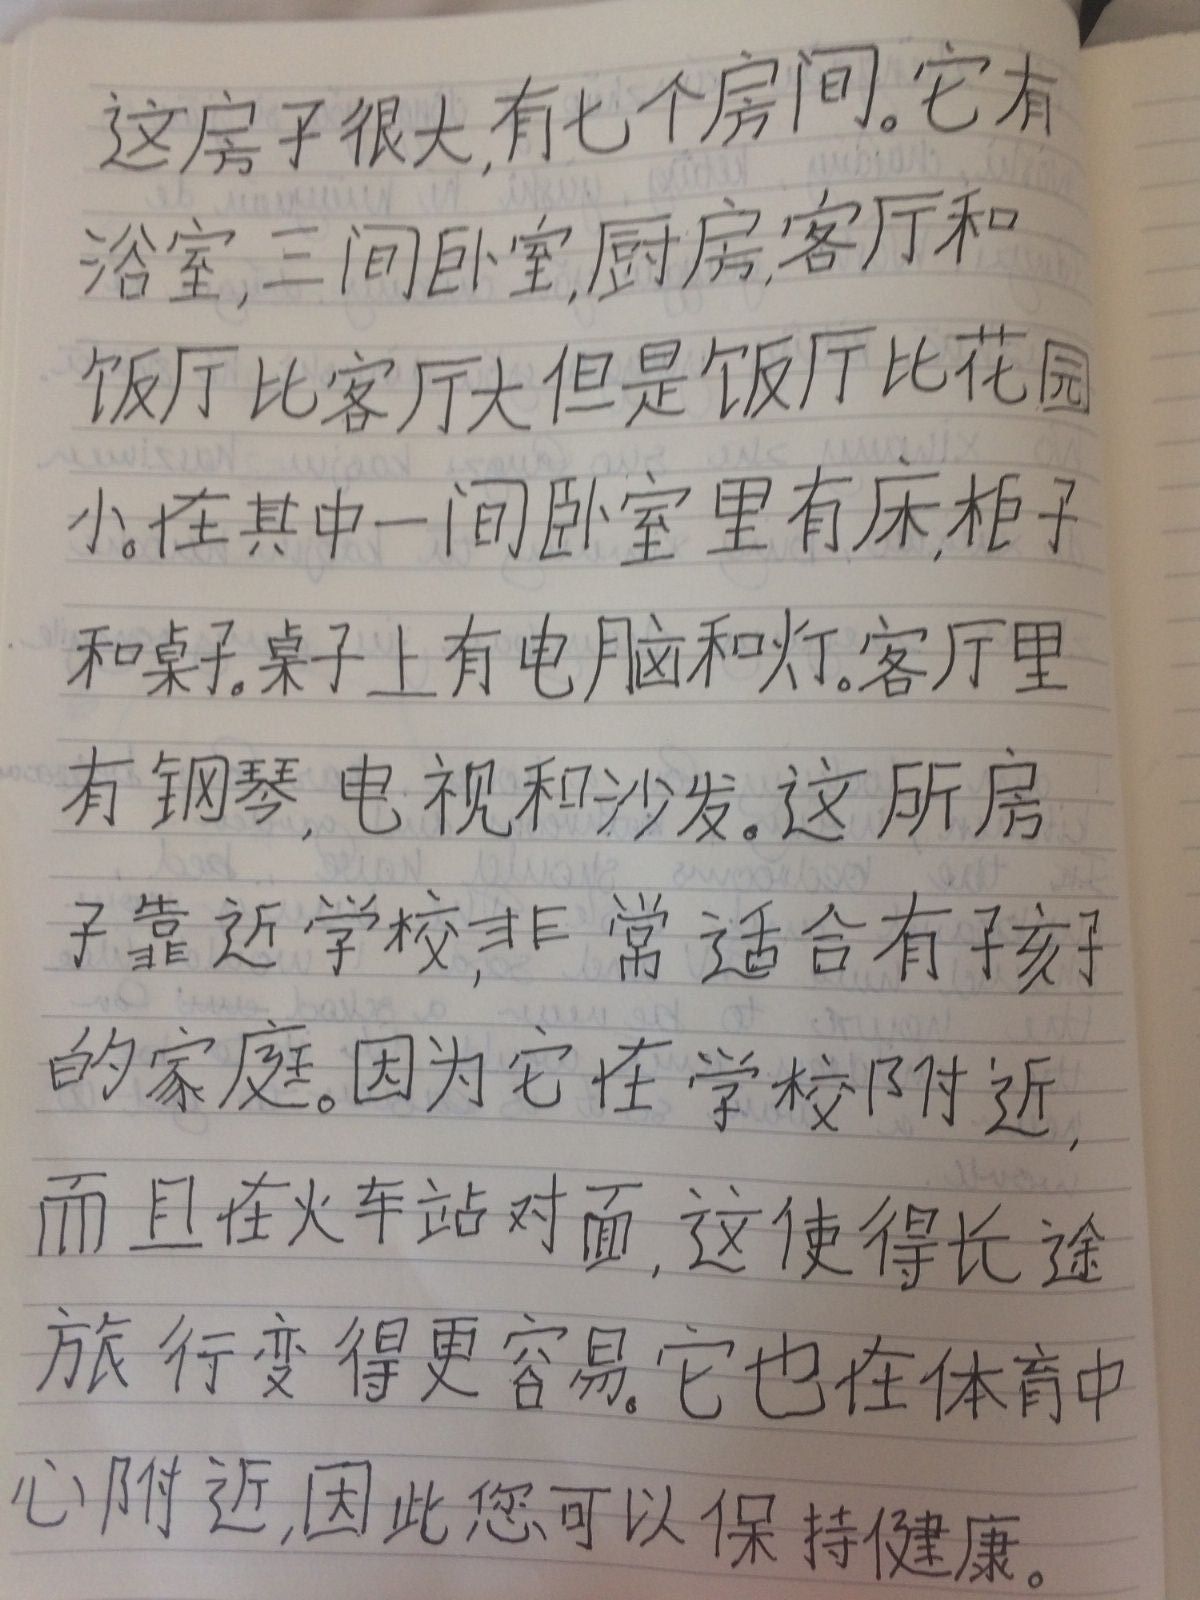 这房子很大,有七个房间。它有
浴室,三间卧室,厨房,客厅和
饭厅比客厅大但是饭厅比花园
小。在其中一间卧室里有床,柜子
和桌子。桌子上有电脑和灯。客厅里
有钢琴,电视和沙发。这所房
子靠近学校,非常适合有子孩子
的家庭。因为它在学校附近,
而且在火车站对面,这使得长途
旅行变得更容易。它也在体育中
心附近,因此您可以保持健康。